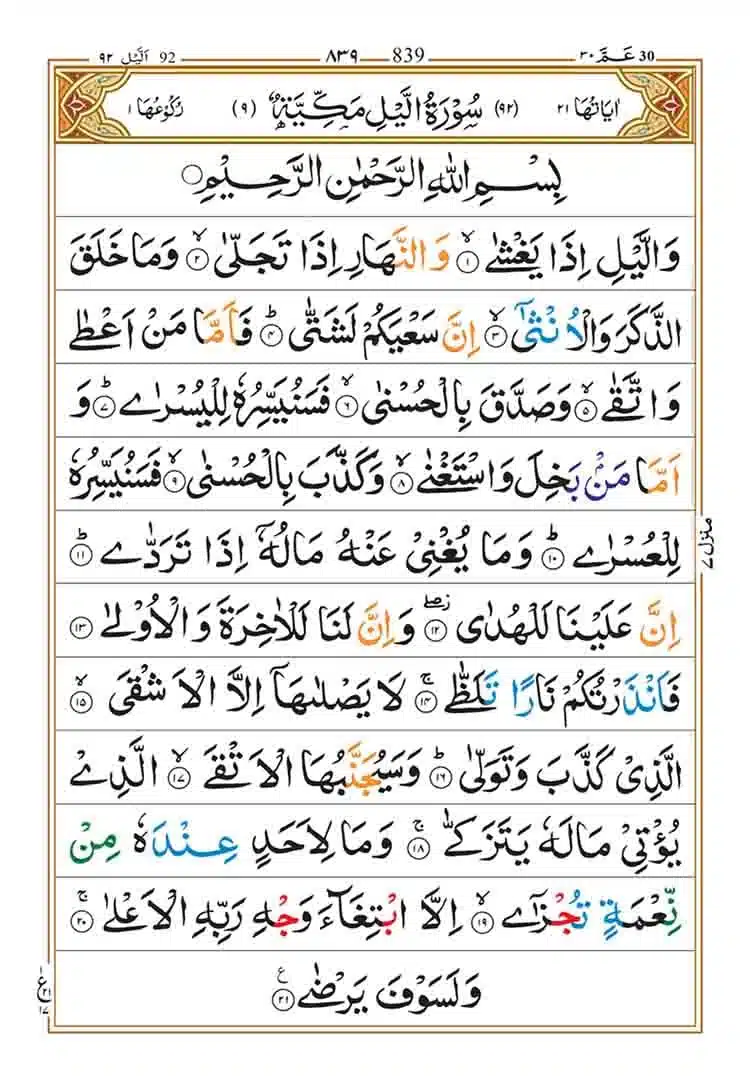 30 عَـمَّ ۳۰ 839 ۸۳۹ 92 اَلَّيْل ۹۲
اٰيَاتُهَا ۲۱ (۹۲) سُوْرَةُ الَّيْلِ مَكِّيَّةٌ (۹) رُكُوْعُهَا ۱
بِسْمِ اللّٰهِ الرَّحْمٰنِ الرَّحِيْمِ ○
وَالَّيْلِ اِذَا يَغْشٰىۙ‏ ۱ وَالنَّهَارِ اِذَا تَجَلّٰىۙ‏ ۲ وَمَا خَلَقَ
الذَّكَرَ وَالْاُنْثٰٓىۙ‏ ۳ اِنَّ سَعْيَكُمْ لَشَتّٰىؕ‏ ۴ فَاَمَّا مَنْ اَعْطٰى
وَاتَّقٰىۙ‏ ۵ وَصَدَّقَ بِالْحُسْنٰىۙ‏ ۶ فَسَنُيَسِّرُهٗ لِلْيُسْرٰىؕ‏ ۷ وَ
اَمَّا مَنْۢ بَخِلَ وَاسْتَغْنٰىۙ‏ ۸ وَكَذَّبَ بِالْحُسْنٰىۙ‏ ۹ فَسَنُيَسِّرُهٗ
لِلْعُسْرٰىؕ‏ ۱۰ وَمَا يُغْنِىْ عَنْهُ مَالُهٗۤ اِذَا تَرَدّٰىؕ‏ ۱۱
اِنَّ عَلَيْنَا لَلْهُدٰىۖ‏ ۱۲ وَاِنَّ لَنَا لَلْاٰخِرَةَ وَالْاُوْلٰى ۱۳
فَاَنْذَرْتُكُمْ نَارًا تَلَظّٰىۚ‏ ۱۴ لَا يَصْلٰىهَاۤ اِلَّا الْاَشْقَىۙ‏ ۱۵
الَّذِىْ كَذَّبَ وَتَوَلّٰىؕ‏ ۱۶ وَسَيُجَنَّبُهَا الْاَتْقَىۙ‏ ۱۷ الَّذِىْ
يُؤْتِىْ مَالَهٗ يَتَزَكّٰىۚ‏ ۱۸ وَمَا لِاَحَدٍ عِنْدَهٗ مِنْ
نِّعْمَةٍ تُجْزٰٓىۙ‏ ۱۹ اِلَّا ابْتِغَآءَ وَجْهِ رَبِّهِ الْاَعْلٰىۚ‏ ۲۰
وَلَسَوْفَ يَرْضٰى ۲۱ ع
منزل ۷
ع ۱ ۲۱ ۱۷